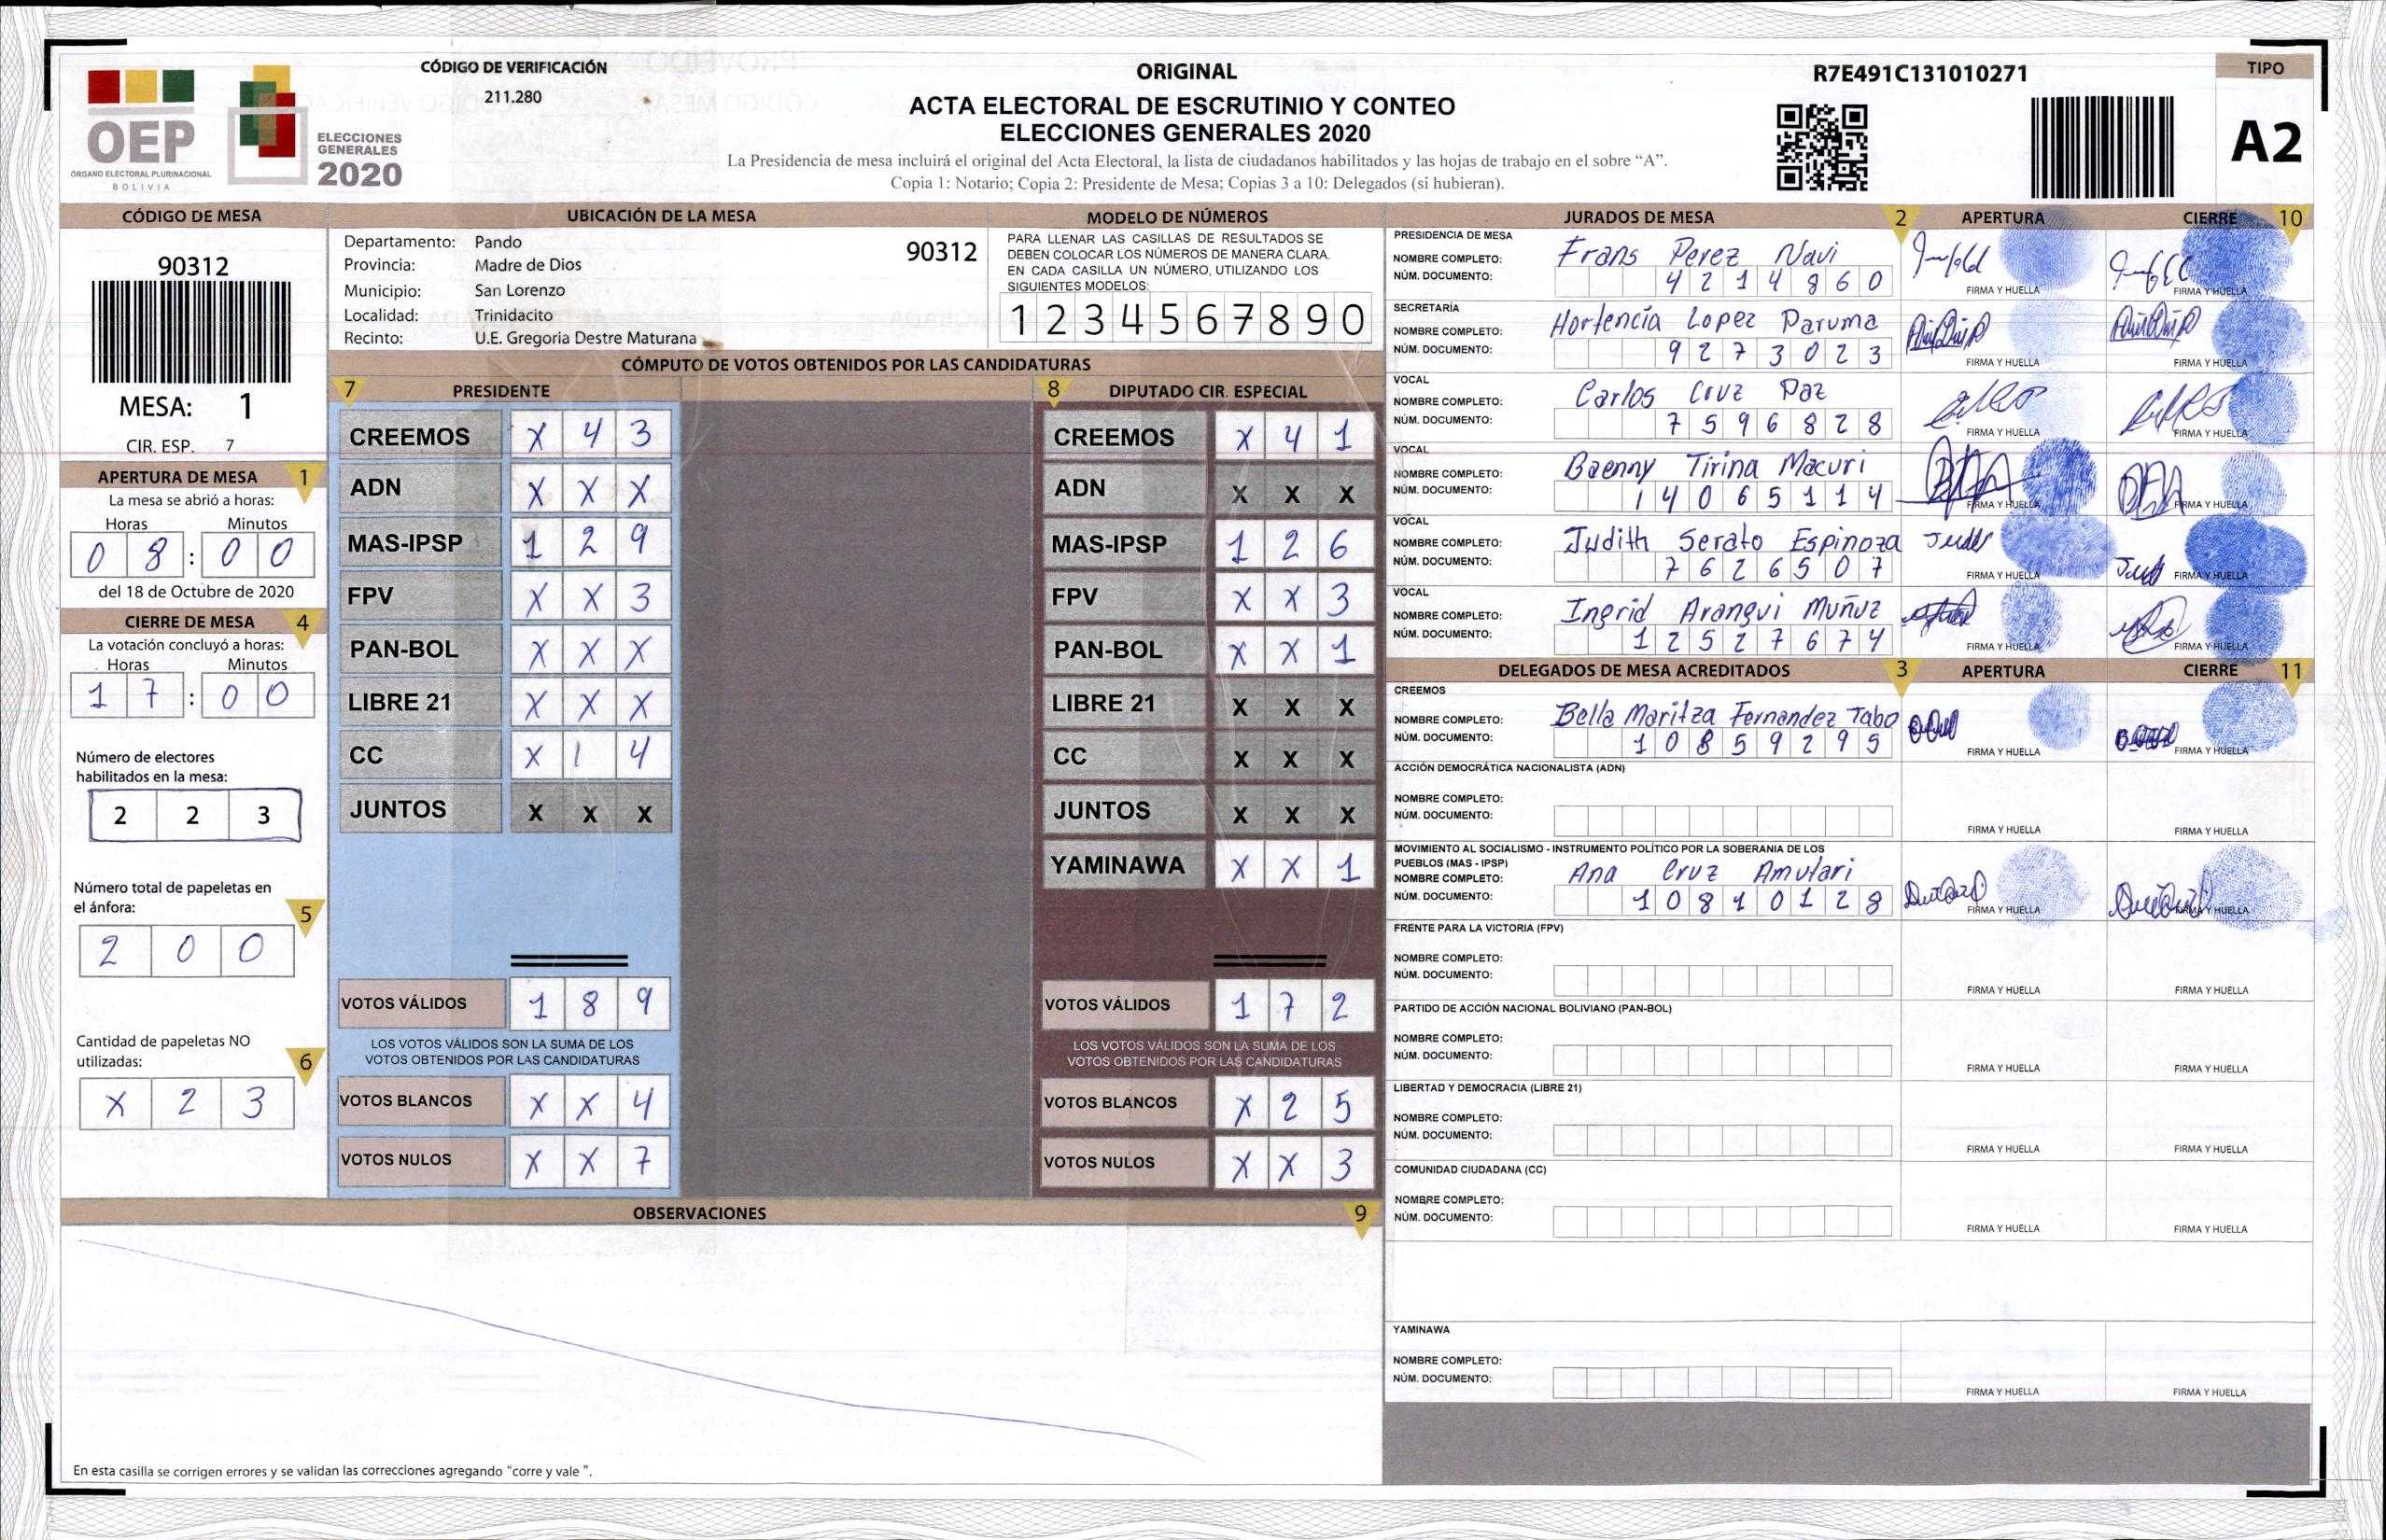 OEP
ÓRGANO ELECTORAL PLURINACIONAL
BOLIVIA
ELECCIONES
GENERALES
2020
CÓDIGO DE VERIFICACIÓN
211.280
ORIGINAL
ACTA ELECTORAL DE ESCRUTINIO Y CONTEO
ELECCIONES GENERALES 2020
La Presidencia de mesa incluirá el original del Acta Electoral, la lista de ciudadanos habilitados y las hojas de trabajo en el sobre “A”.
Copia 1: Notario; Copia 2: Presidente de Mesa; Copias 3 a 10: Delegados (si hubieran).
R7E491C131010271
TIPO
A2
CÓDIGO DE MESA
90312
MESA: 1
CIR. ESP. 7
APERTURA DE MESA 1
La mesa se abrió a horas:
Horas Minutos
0 8 : 0 0
del 18 de Octubre de 2020
CIERRE DE MESA 4
La votación concluyó a horas:
Horas Minutos
1 7 : 0 0
Número de electores
habilitados en la mesa:
2 2 3
Número total de papeletas en
el ánfora: 5
2 0 0
Cantidad de papeletas NO
utilizadas: 6
X 2 3
UBICACIÓN DE LA MESA
Departamento: Pando 90312
Provincia: Madre de Dios
Municipio: San Lorenzo
Localidad: Trinidacito
Recinto: U.E. Gregoria Destre Maturana
MODELO DE NÚMEROS
PARA LLENAR LAS CASILLAS DE RESULTADOS SE
DEBEN COLOCAR LOS NÚMEROS DE MANERA CLARA.
EN CADA CASILLA UN NÚMERO, UTILIZANDO LOS
SIGUIENTES MODELOS:
1 2 3 4 5 6 7 8 9 0
CÓMPUTO DE VOTOS OBTENIDOS POR LAS CANDIDATURAS
7 PRESIDENTE
CREEMOS X 4 3
ADN X X X
MAS-IPSP 1 2 9
FPV X X 3
PAN-BOL X X X
LIBRE 21 X X X
CC X 1 4
JUNTOS X X X
VOTOS VÁLIDOS 1 8 9
LOS VOTOS VÁLIDOS SON LA SUMA DE LOS
VOTOS OBTENIDOS POR LAS CANDIDATURAS
VOTOS BLANCOS X X 4
VOTOS NULOS X X 7
8 DIPUTADO CIR. ESPECIAL
CREEMOS X 4 1
ADN X X X
MAS-IPSP 1 2 6
FPV X X 3
PAN-BOL X X 1
LIBRE 21 X X X
CC X X X
JUNTOS X X X
YAMINAWA X X 1
VOTOS VÁLIDOS 1 7 2
LOS VOTOS VÁLIDOS SON LA SUMA DE LOS
VOTOS OBTENIDOS POR LAS CANDIDATURAS
VOTOS BLANCOS X 2 5
VOTOS NULOS X X 3
OBSERVACIONES 9
En esta casilla se corrigen errores y se validan las correcciones agregando “corre y vale ”.
JURADOS DE MESA 2 APERTURA CIERRE 10
PRESIDENCIA DE MESA
NOMBRE COMPLETO: Frans Perez Navi
NÚM. DOCUMENTO: 4 2 1 4 8 6 0
FIRMA Y HUELLA FIRMA Y HUELLA
SECRETARÍA
NOMBRE COMPLETO: Hortencia Lopez Daruma
NÚM. DOCUMENTO: 9 2 7 3 0 2 3
FIRMA Y HUELLA FIRMA Y HUELLA
VOCAL
NOMBRE COMPLETO: Carlos Cruz Paz
NÚM. DOCUMENTO: 7 5 9 6 8 2 8
FIRMA Y HUELLA FIRMA Y HUELLA
VOCAL
NOMBRE COMPLETO: Baenny Tirina Macuri
NÚM. DOCUMENTO: 1 4 0 6 5 1 1 4
FIRMA Y HUELLA FIRMA Y HUELLA
VOCAL
NOMBRE COMPLETO: Judith Serato Espinoza
NÚM. DOCUMENTO: 7 6 2 6 5 0 7
FIRMA Y HUELLA FIRMA Y HUELLA
VOCAL
NOMBRE COMPLETO: Ingrid Arangui Muñuz
NÚM. DOCUMENTO: 1 2 5 2 7 6 7 4
FIRMA Y HUELLA FIRMA Y HUELLA
DELEGADOS DE MESA ACREDITADOS 3 APERTURA CIERRE 11
CREEMOS
NOMBRE COMPLETO: Bella Maritza Fernandez Tabo
NÚM. DOCUMENTO: 1 0 8 5 9 2 9 5
FIRMA Y HUELLA FIRMA Y HUELLA
ACCIÓN DEMOCRÁTICA NACIONALISTA (ADN)
NOMBRE COMPLETO:
NÚM. DOCUMENTO:
FIRMA Y HUELLA FIRMA Y HUELLA
MOVIMIENTO AL SOCIALISMO - INSTRUMENTO POLÍTICO POR LA SOBERANIA DE LOS
PUEBLOS (MAS - IPSP)
NOMBRE COMPLETO: Ana Cruz Amutari
NÚM. DOCUMENTO: 1 0 8 1 0 1 2 8
FIRMA Y HUELLA FIRMA Y HUELLA
FRENTE PARA LA VICTORIA (FPV)
NOMBRE COMPLETO:
NÚM. DOCUMENTO:
FIRMA Y HUELLA FIRMA Y HUELLA
PARTIDO DE ACCIÓN NACIONAL BOLIVIANO (PAN-BOL)
NOMBRE COMPLETO:
NÚM. DOCUMENTO:
FIRMA Y HUELLA FIRMA Y HUELLA
LIBERTAD Y DEMOCRACIA (LIBRE 21)
NOMBRE COMPLETO:
NÚM. DOCUMENTO:
FIRMA Y HUELLA FIRMA Y HUELLA
COMUNIDAD CIUDADANA (CC)
NOMBRE COMPLETO:
NÚM. DOCUMENTO:
FIRMA Y HUELLA FIRMA Y HUELLA
YAMINAWA
NOMBRE COMPLETO:
NÚM. DOCUMENTO:
FIRMA Y HUELLA FIRMA Y HUELLA